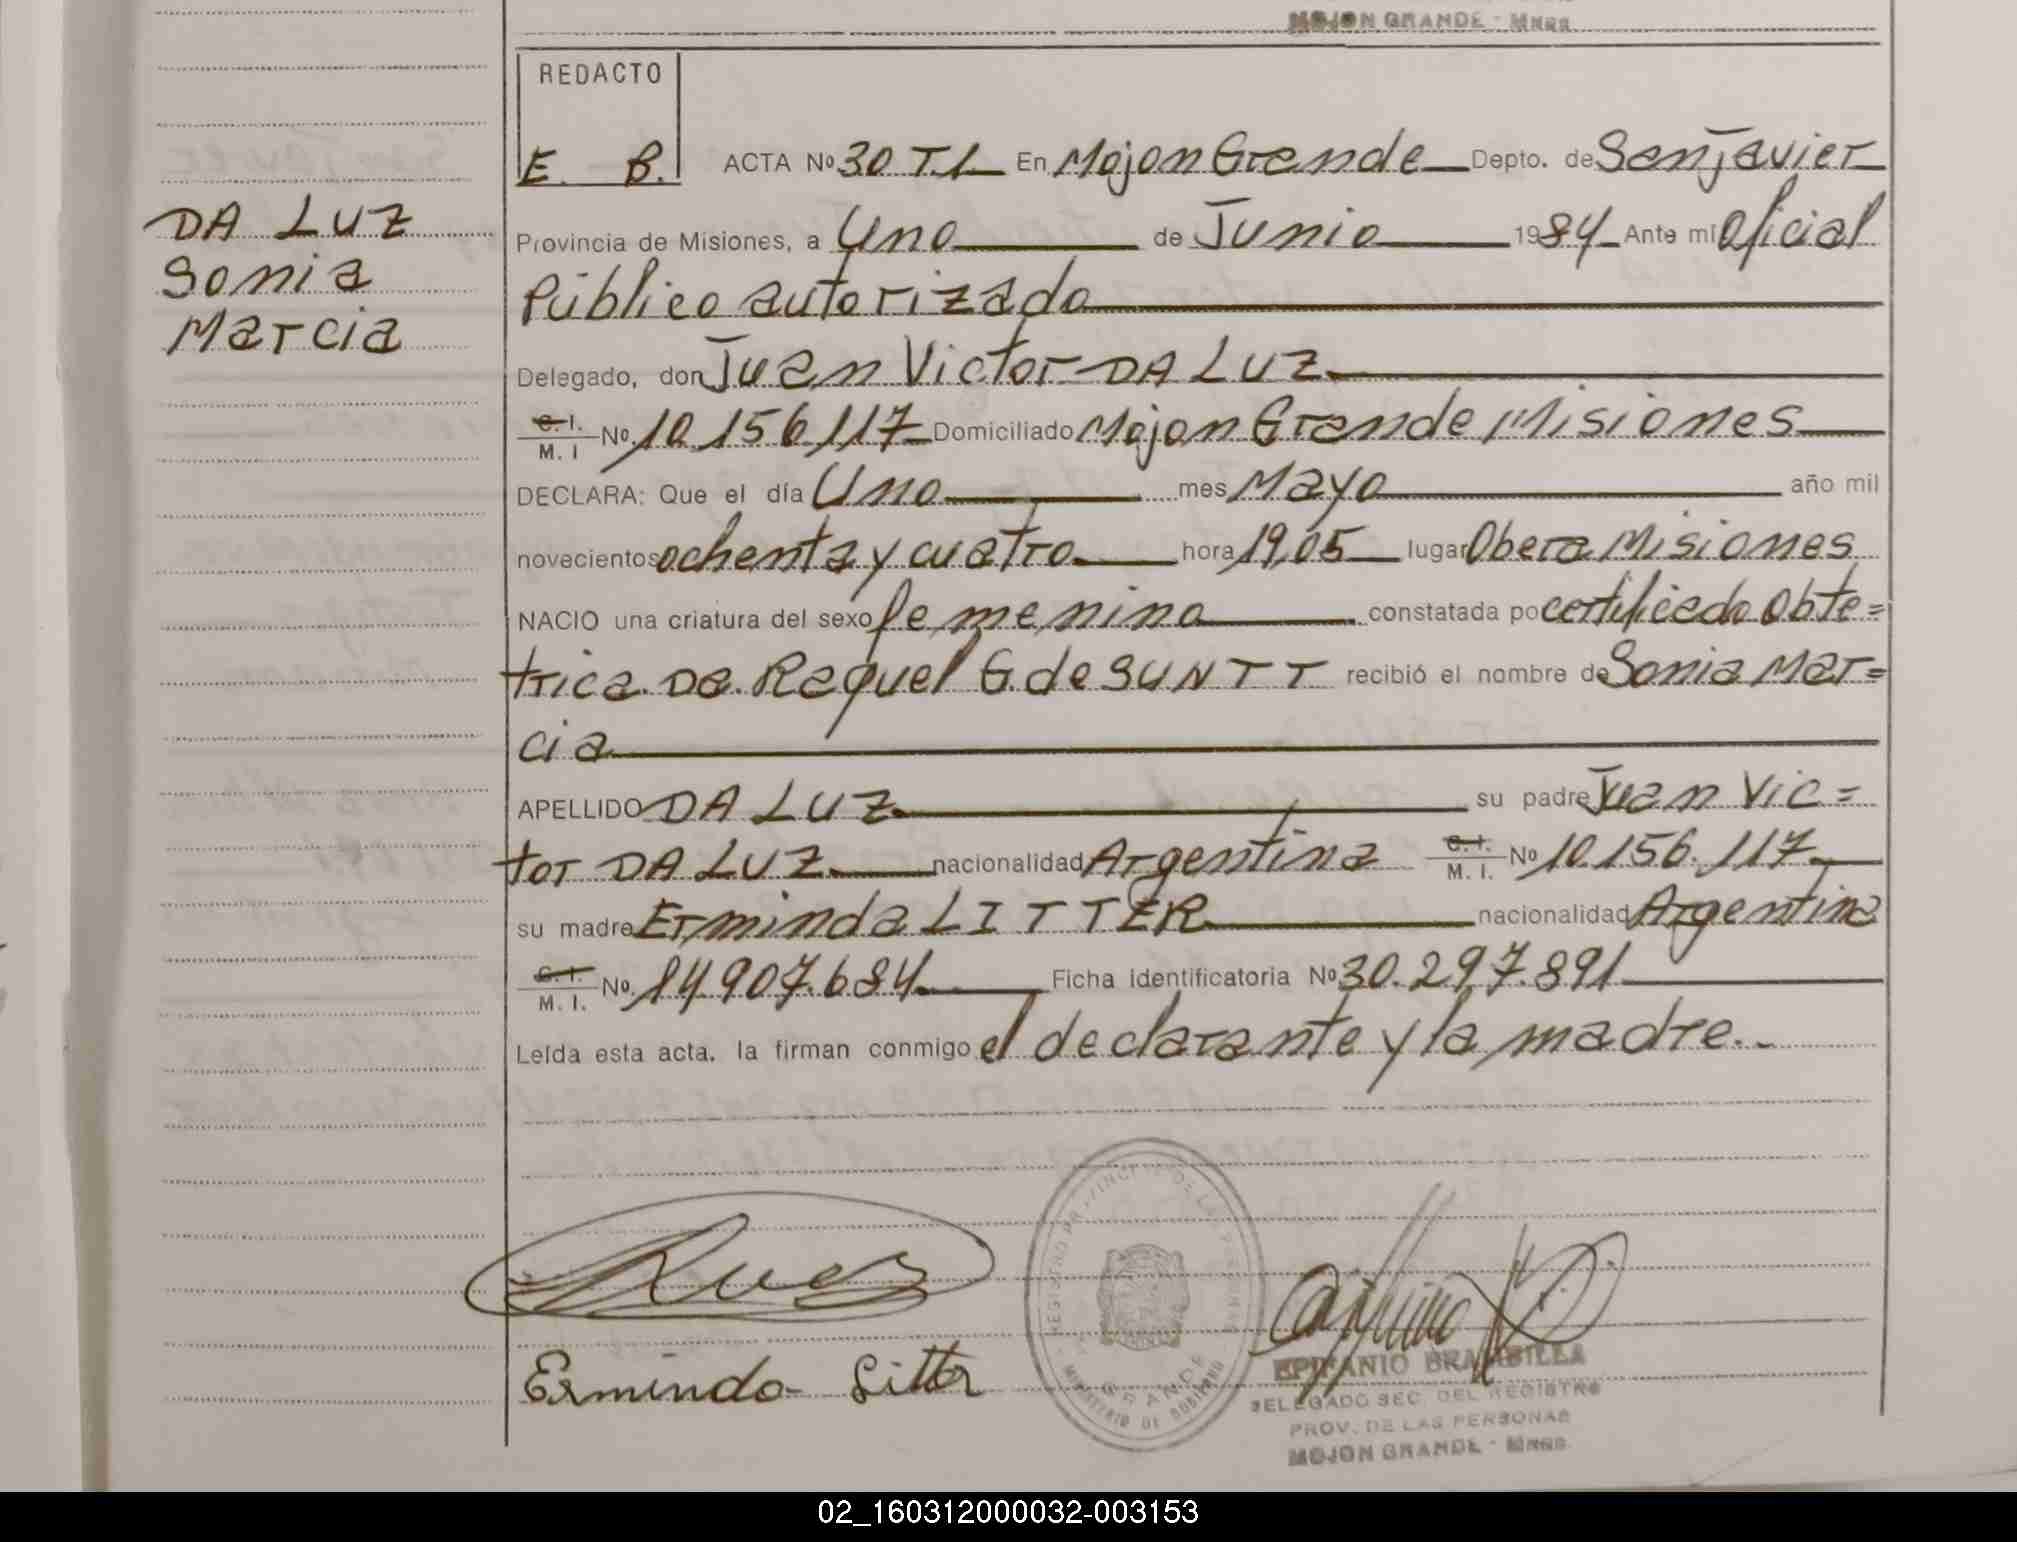 MOJON GRANDE - Mnes
REDACTO
E. B. ACTA No 30 T.I. En Mojon Grande Depto. de San Javier
DA LUZ
Sonia
Marcia
Provincia de Misiones, a Uno de Junio 1984 Ante mi Oficial
Público autorizado
Delegado, don Juan Victor DA LUZ
C. I. M. I No 10.156.117 Domiciliado Mojon Grande Misiones
DECLARA: Que el día Uno mes Mayo año mil
novecientos ochenta y cuatro hora 19,05 lugar Obera Misiones
NACIO una criatura del sexo femenino constatada po certificado Obte=
trica Da. Raquel G. de SUNTT recibió el nombre de Sonia Mar=
cia
APELLIDO DA LUZ su padre Juan Vic=
tor DA LUZ nacionalidad Argentina C. I. M. I. No 10.156.117
su madre Erminda LITTER nacionalidad Argentina
C. I. M. I. No. 14.907.684 Ficha identificatoria No 30.297.891
Leída esta acta, la firman conmigo el declarante y la madre..
REGISTRO PROVINCIAL DE LAS PERSONAS
GRANDE
MINISTERIO DE GOBIERNO
Erminda Litter
EPIFANIO BRAMBILLA
DELEGADO SEC. DEL REGISTRO
PROV. DE LAS PERSONAS
MOJON GRANDE - Mnes
02_160312000032-003153